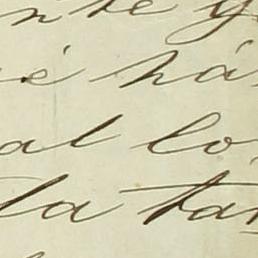 nte y
é há
al lo
la tan